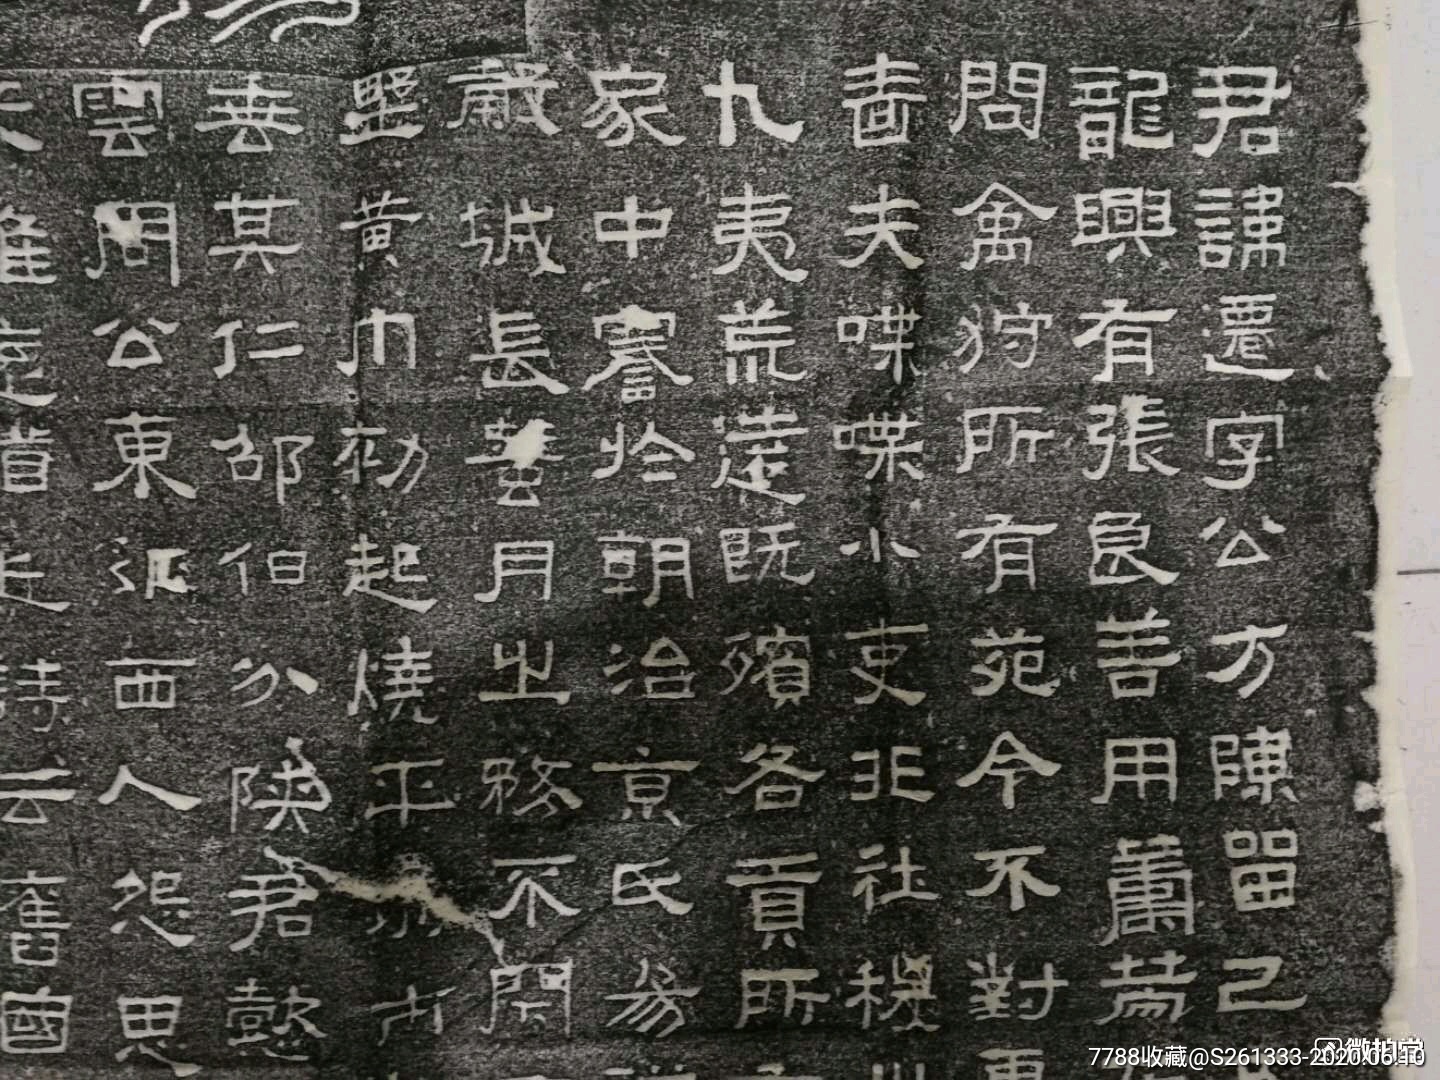 君諱遷字公方陳留己
龍興有張良善用籌
問禽狩所有苑令不對
嗇夫喋喋小吏非社稷
九夷荒遠既殯各貢所
家中謇於朝治京氏易
穀城長蠶月之務不閉
黃巾初起燒平城市
其仁邵伯分陝君懿
雲周公東征西人怨思
隨
詩云舊國
7788收藏@S261333-2020.06.10
微拍堂